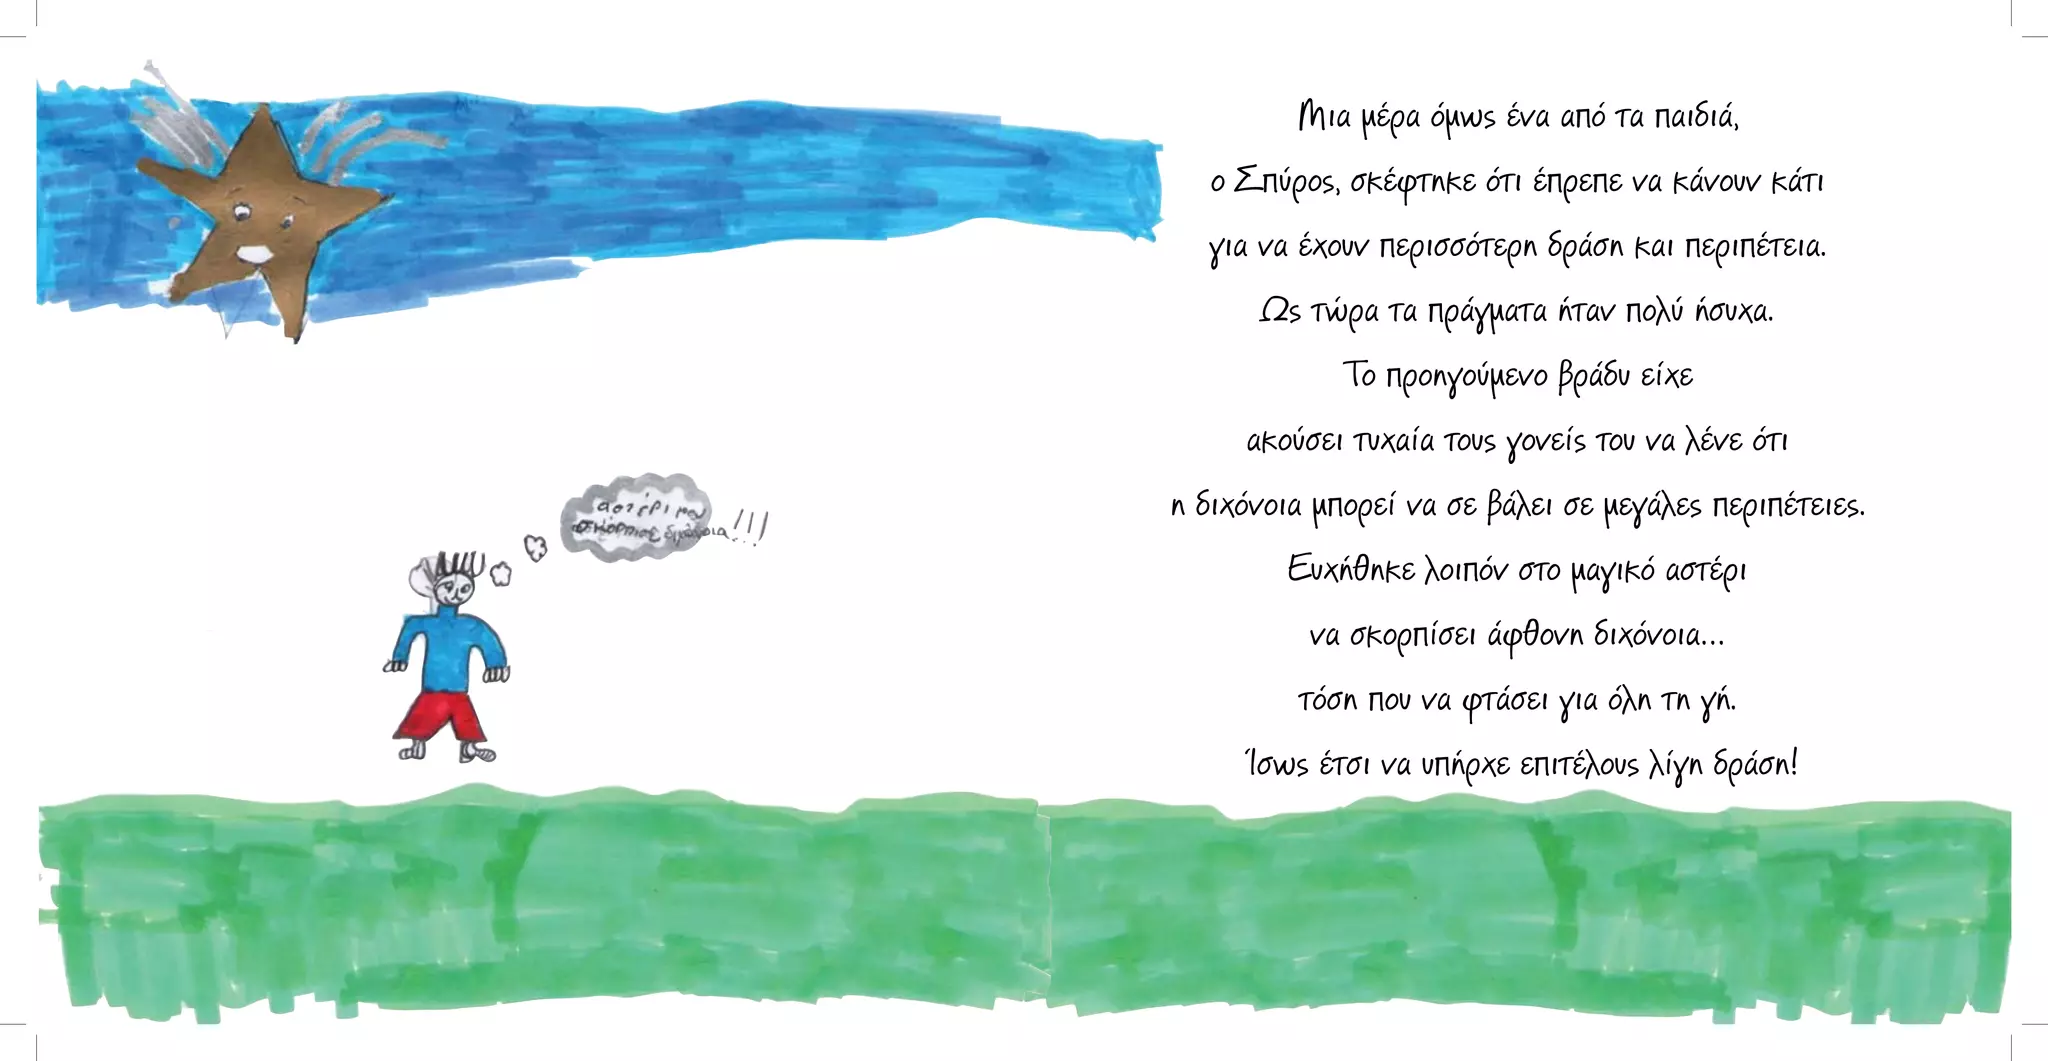 αστέρι μου
σκόρπισε διχόνοια!!!
Μια μέρα όμως ένα από τα παιδιά,
ο Σπύρος, σκέφτηκε ότι έπρεπε να κάνουν κάτι
για να έχουν περισσότερη δράση και περιπέτεια.
Ως τώρα τα πράγματα ήταν πολύ ήσυχα.
Το προηγούμενο βράδυ είχε
ακούσει τυχαία τους γονείς του να λένε ότι
η διχόνοια μπορεί να σε βάλει σε μεγάλες περιπέτειες.
Ευχήθηκε λοιπόν στο μαγικό αστέρι
να σκορπίσει άφθονη διχόνοια...
τόση που να φτάσει για όλη τη γή.
Ίσως έτσι να υπήρχε επιτέλους λίγη δράση!